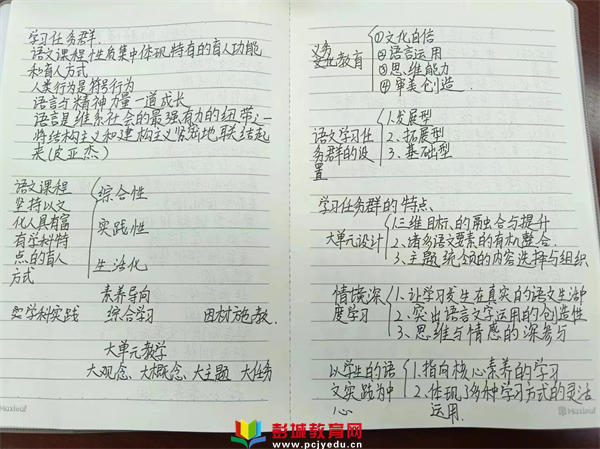 学习任务群.
语文课程性质集中体现特有的育人功能
和育人方式
人类行为是符号行为
语言与精神力量一道成长
语言是维系社会的最强有力的纽带之一
将结构主义和建构主义紧密地联结起
来(皮亚杰)
语文课程
坚持以文
化人具有富
有学科特
点的育人
方式
综合性
实践性
生活化
素养导向
学科实践 综合学习 因材施教.
大单元教学
大观念、大概念、大主题 大任务
Maxleaf
义务
教育
①文化自信
②语言运用
③思维能力
④审美创造.
语文学习任
务群的设
置
1.发展型
2、拓展型
3、基础型
学习任务群的特点
大单元设计
1.三维目标的融合与提升
2、诸多语文要素的有机整合.
3、主题统领的内容选择与组织
情境深
度学习
1、让学习发生在真实的语文生活中
2、突出语言文字运用的创造性
3、思维与情感的深参与
以学生的语
文实践为中
心
1、指向核心素养的学习
2、体现了多种学习方式的灵活
运用.
Maxleaf
彭城教育网
www.pcjyedu.cn